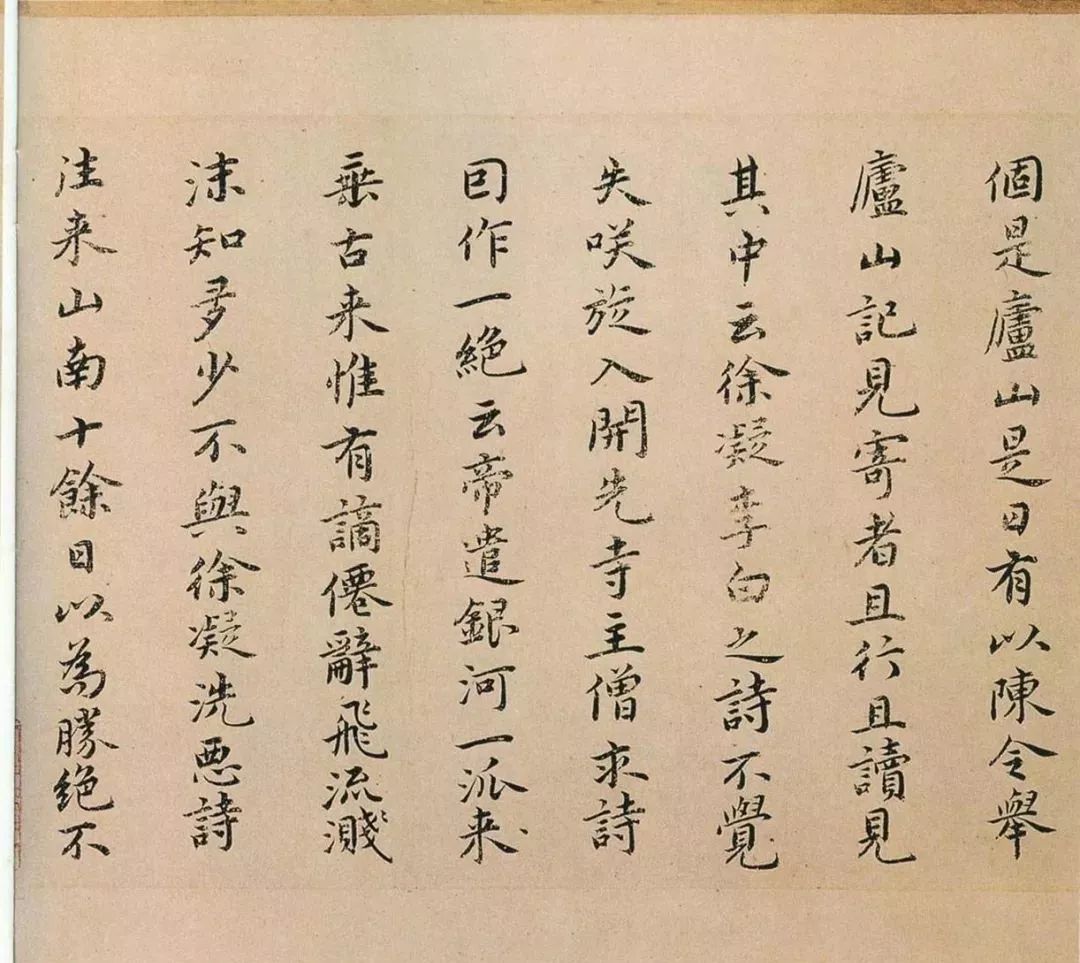 個是廬山是日有以陳令舉
廬山記見寄者且行且讀見
其中云徐凝李白之詩不覺
失咲旋入開先寺主僧求詩
囙作一絕云帝遣銀河一派来
垂古来惟有謫僊辭飛流濺
沫知多少不與徐凝洗惡詩
往来山南十餘日以為勝絕不